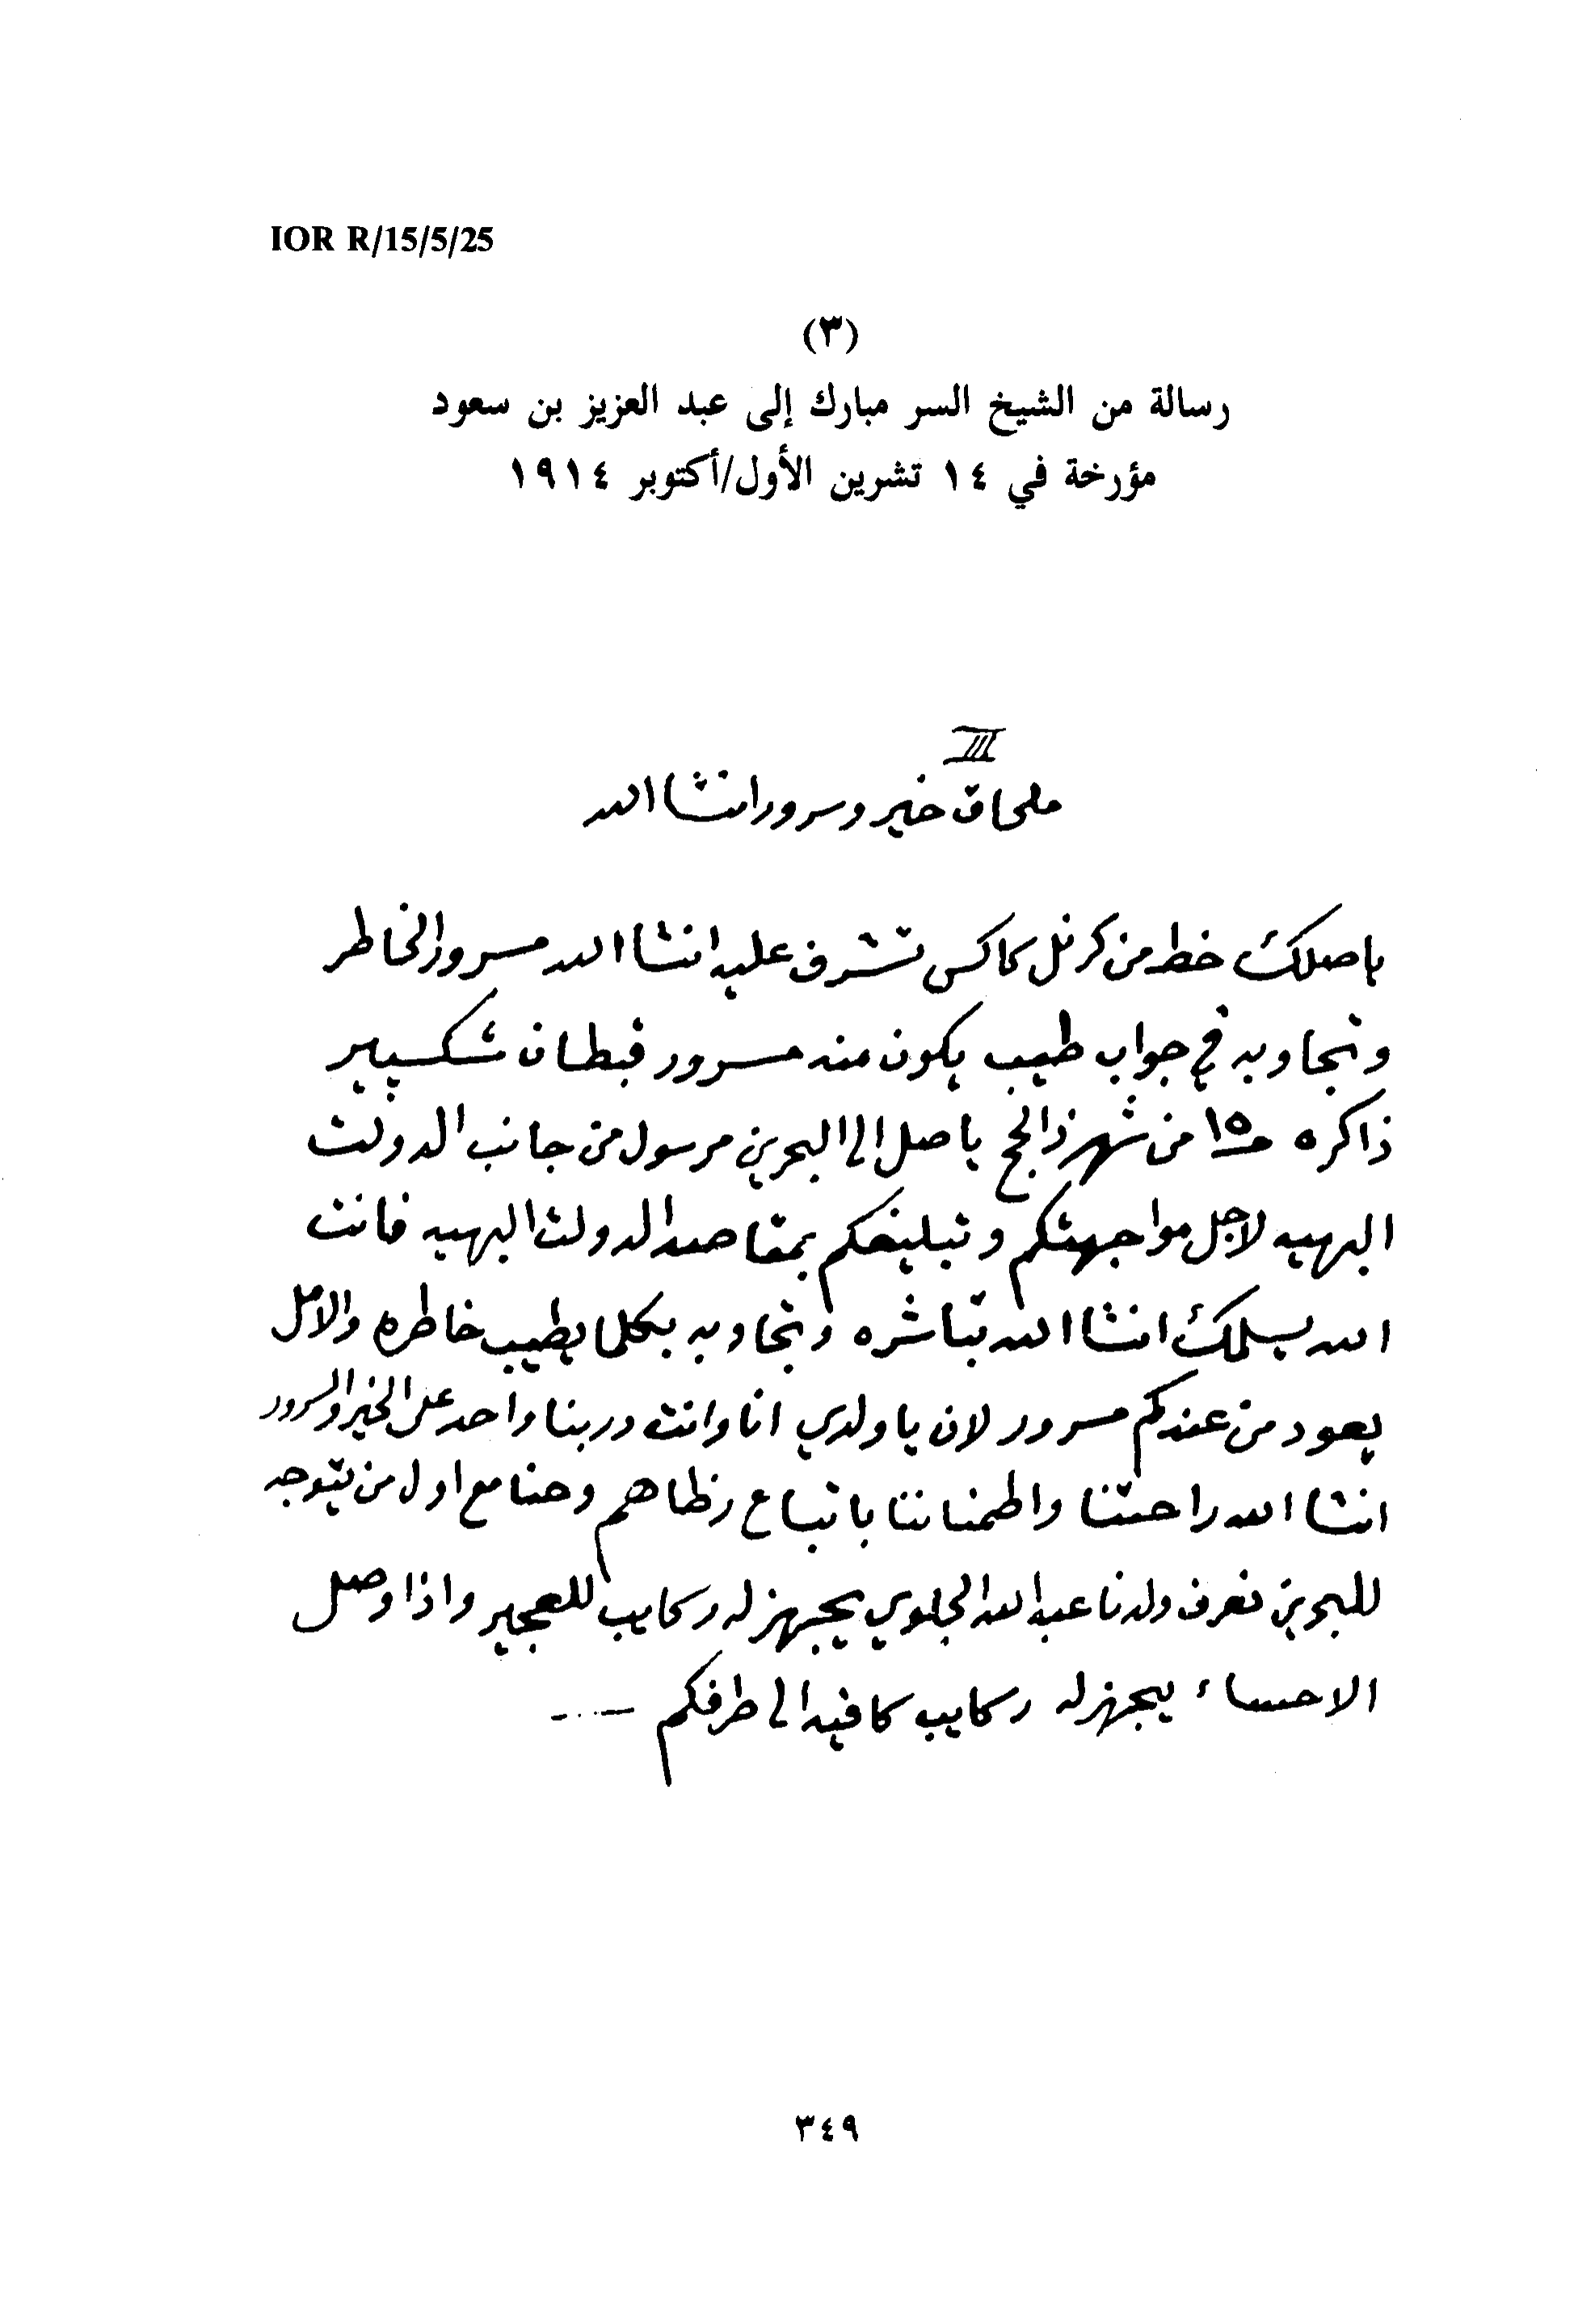 IOR R/15/5/25
(٣)
رسالة من الشيخ السر مبارك إلى عبد العزيز بن سعود
مؤرخة في ١٤ تشرين الأول/أكتوبر ١٩١٤
III
ملحاق خير وسرور انشا الله
ياصلك خط من كرنل كاكس تشرف عليه انشا الله مسرور الخاطر
وتجاوبه في جواب طيب يكون منه مسرور قبطان شكسپير
ذاكره ١٥ من شهر ذالحج ياصل الى البحرين مرسول من جانب الدولت
البهيه لاجل مواجهتكم وتبليغكم بمقاصد الدولت البهيه فانت
الله يسلمك انشا الله تباشره وتجاوبه بكلما يطيب خاطره والامل
يعود من عندكم مسرور لان يا ولدي انا وانت دربنا واحد على الخير والسرور
انشا الله راحتنا واطمناننا باتباع رظاهم وحنا مع اول من يتوجه
للبحرين نعرف ولدنا عبدالله الجلوي يجهز له ركايب للعجير واذا وصل
الاحساء يجهز له ركايب كافيه الى طرفكم
٣٤٩